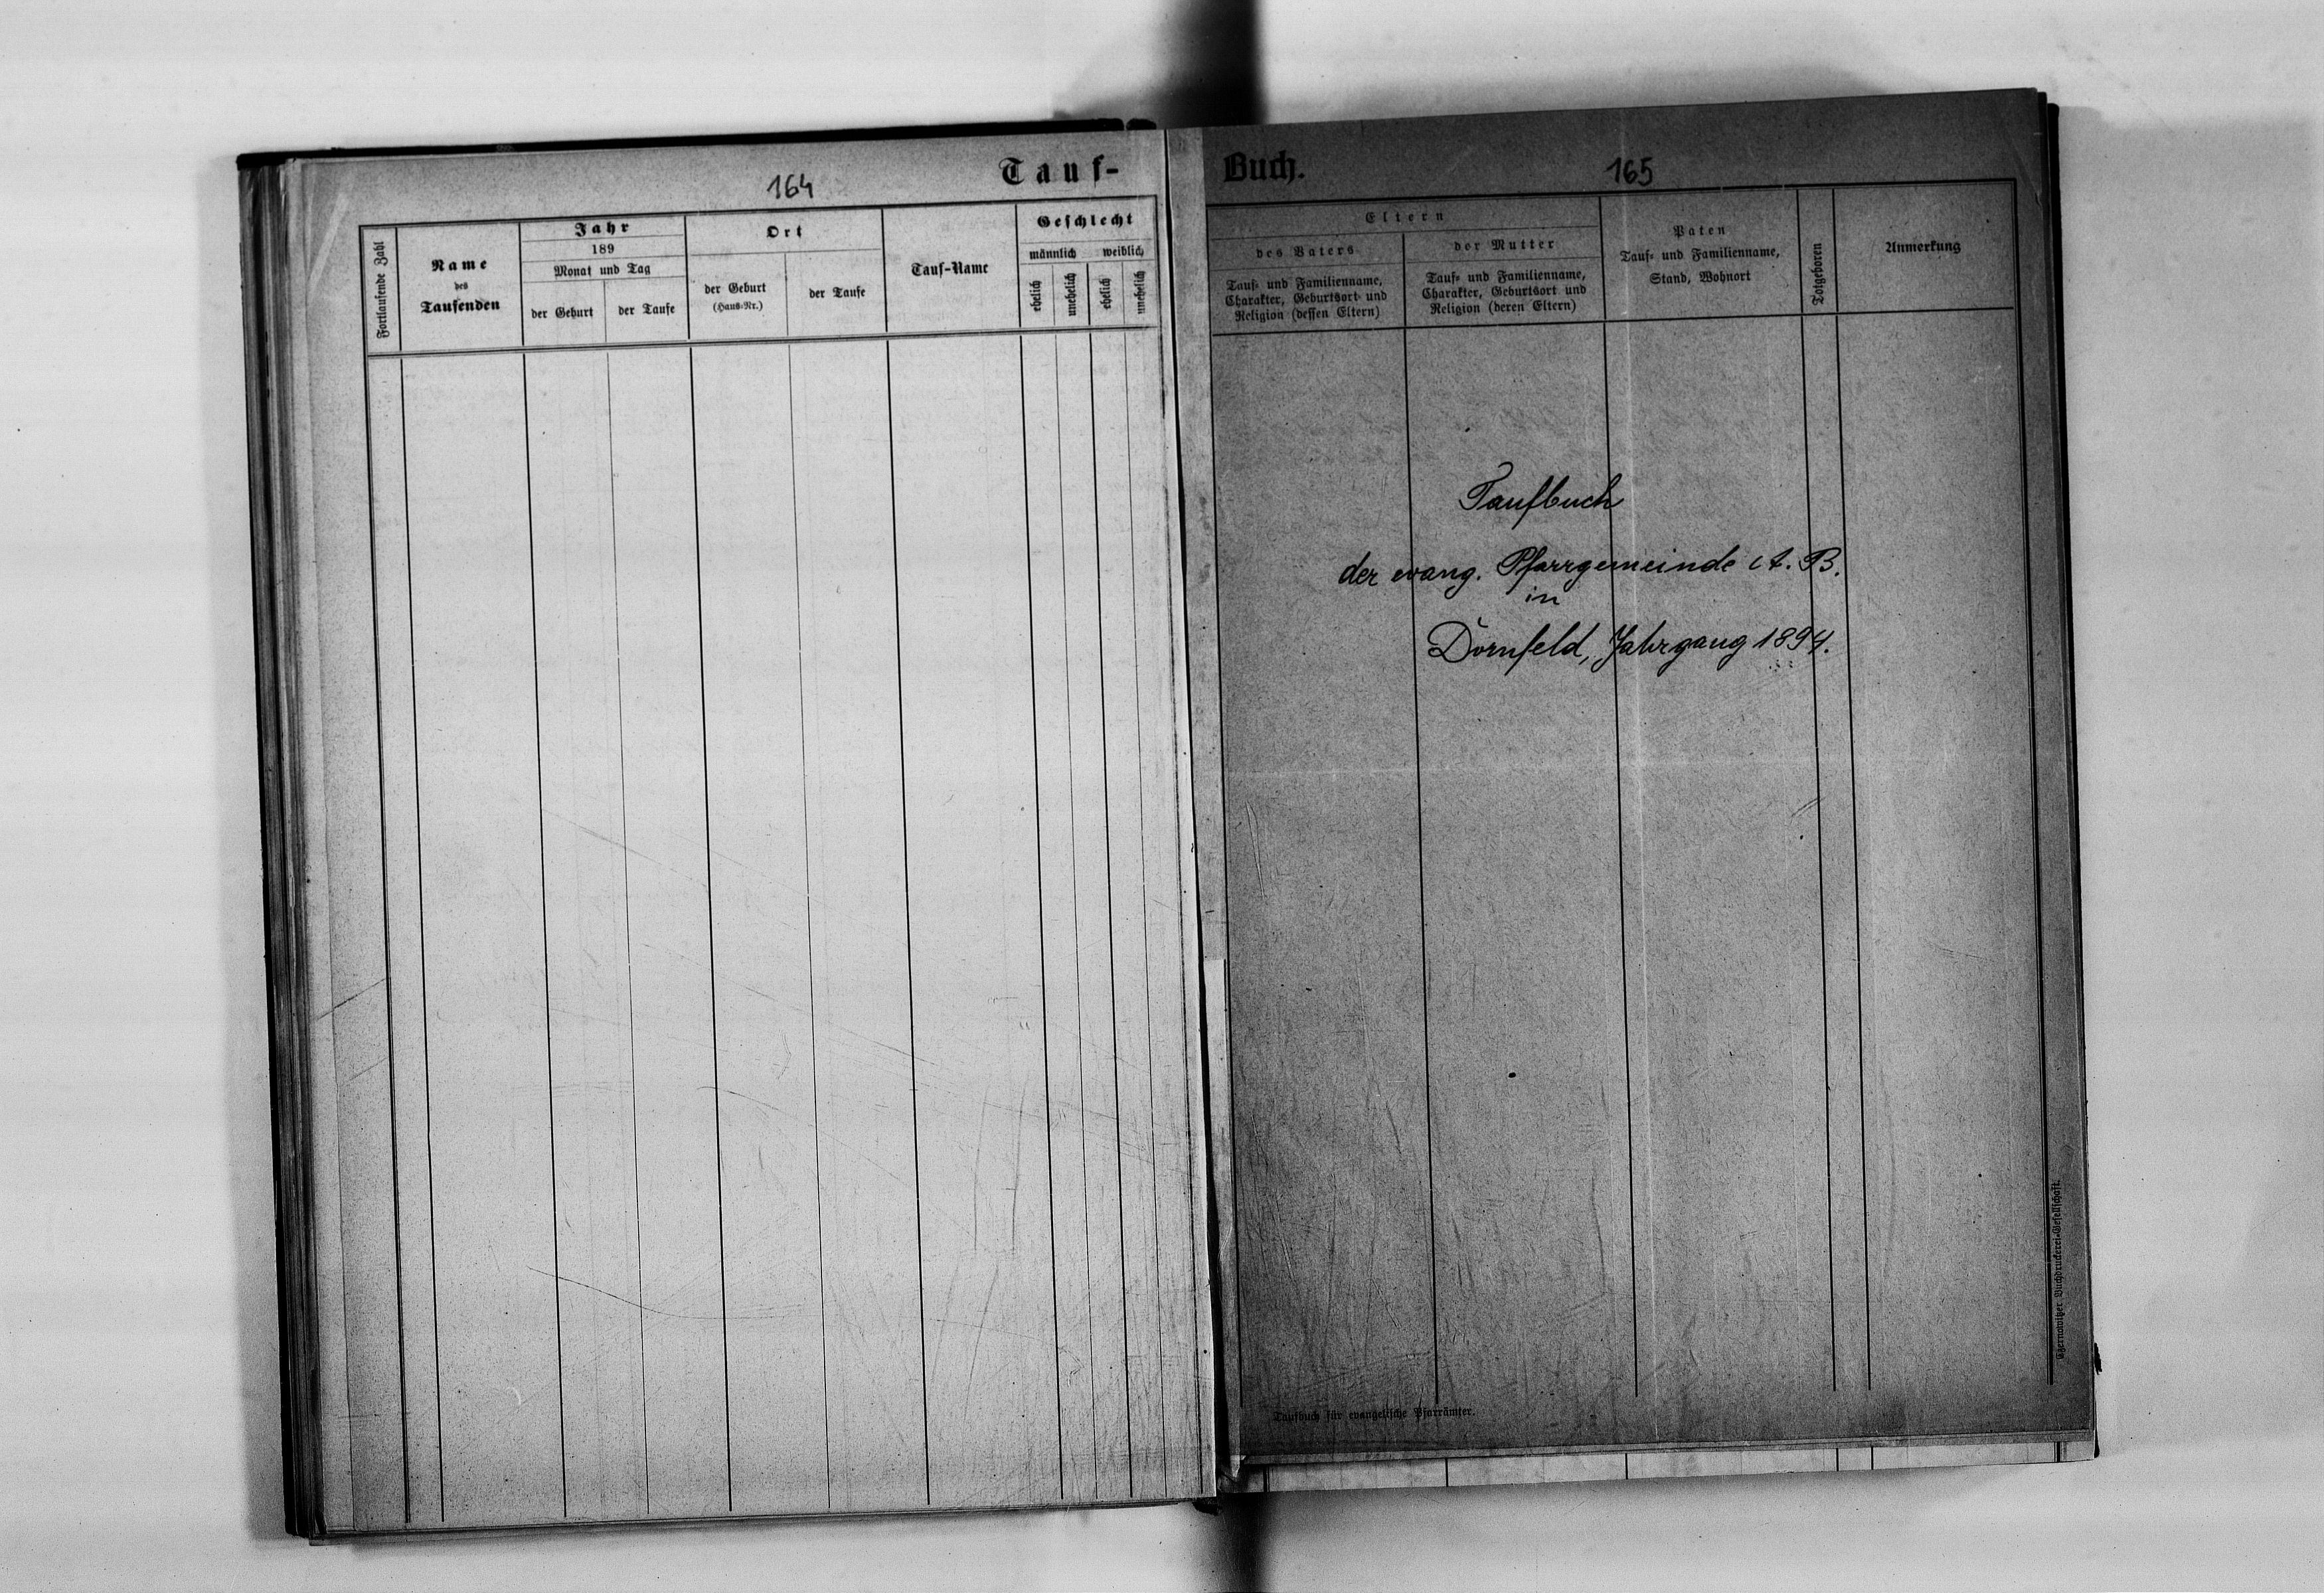 164
Tauf-
Fortlaufende Zahl
Name
des
Taufenden
Jahr
189
Monat und Tag
der Geburt
der Taufe
Ort
der Geburt
(Haus-Nr.)
der Taufe
Tauf-Name
Geschlecht
männlich weiblich
ehelich
unehelich
ehelich
unehelich
Buch.
165
Eltern
des Vaters
Tauf- und Familienname,
Charakter, Geburtsort und
Religion (dessen Eltern)
der Mutter
Tauf- und Familienname,
Charakter, Geburtsort und
Religion (deren Eltern)
Paten
Tauf- und Familienname,
Stand, Wohnort
Totgeboren
Anmerkung
Taufbuch
der evang. Pfarrgemeinde A. B.
in
Dornfeld, Jahrgang 1894.
Taufbuch für evangelische Pfarrämter.
Czernowitzer Buchdruckerei-Gesellschaft.